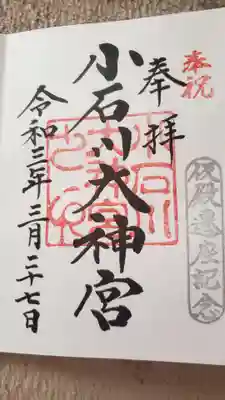 奉祝
奉拝
仮殿遷座記念
小石川大神宮
令和三年三月二十七日